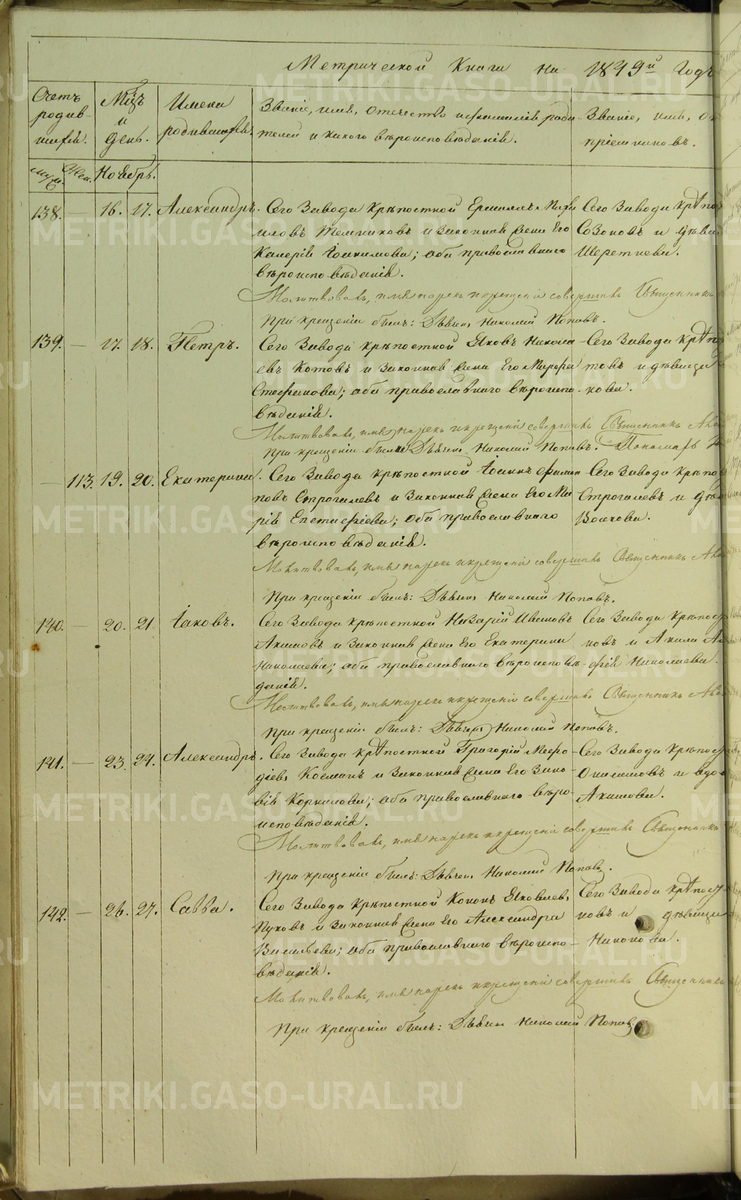 Метрической Книги на 1849й Годъ
Счетъ родив-шихся. Мцъ и день. Имена родившихся. Званіе, имя, отечество и фамилія роди-телей и какого вѣроисповѣданія. Званіе, имя, о
пріемниковъ.
муж. жен. Ноябрь.
138. — 16. 17. Александръ. Сего Завода крѣпостной
и законная жена Его
Калерія Іоакимова; оба православнаго
вѣроисповѣданія.
Сего Завода крѣпо
Созоновъ и дѣви
Молитвовалъ, имя нарекъ и крещеніе совершилъ Священникъ
При крещеніи былъ: Дьячекъ Николай Поповъ.
139. — 17. 18. Петръ. Сего Завода крѣпостной Яковъ Никола
евъ Котовъ и Законная жена Его Марфа
Стефанова; оба православнаго вѣроиспо-
вѣданія.
Сего Завода крѣпо
товъ и дѣвица
кова.
Молитвовалъ, имя нарекъ и крещеніе совершилъ Священникъ
При крещеніи были Дьячекъ Николай Поповъ. Пономарь
— 113. 19. 20. Екатерина. Сего Завода крѣпостной Іоаннъ Филип
повъ Строгалевъ и Законная жена Его Ма
рія Епетифіева; оба православнаго
вѣроисповѣданія.
Сего Завода крѣпо
Строгалевъ и
Волкова.
Молитвовалъ, имя нарекъ и крещеніе совершилъ Священникъ
При крещеніи былъ: Дьячекъ Николай Поповъ.
140. — 20. 21. Іаковъ. Сего Завода крѣпостной Назарій Ивановъ
Акиловъ и Законная жена Его Екатерина
Николаевна; оба православнаго вѣроисповѣ-
данія.
Сего Завода крѣпос
новъ и
Николаева.
Молитвовалъ, имя нарекъ и крещеніе совершилъ Священникъ
При крещеніи былъ: Дьячекъ Николай Поповъ.
141. — 23. 24. Александръ. Сего Завода крѣпостной Григорій Меѳо-
діевъ и Законная жена Его Зино-
вія Корнилова; оба православнаго вѣро-
исповѣданія.
Сего Завода крѣпос
Онисимовъ и вдова
Акилова.
Молитвовалъ, имя нарекъ и крещеніе совершилъ Священникъ
При крещеніи былъ: Дьячекъ Николай Поповъ.
142. — 26. 27. Савва. Сего Завода крѣпостной Кононъ Яковлевъ
Пуховъ и Законная жена Его Александра
Васильева; оба православнаго вѣроиспо-
вѣданія.
Сего Завода крѣпос
новъ и дѣвица
Никонова.
Молитвовалъ, имя нарекъ и крещеніе совершилъ Священникъ
При крещеніи былъ: Дьячекъ Николай Поповъ
METRIKI.GASO-URAL.RU